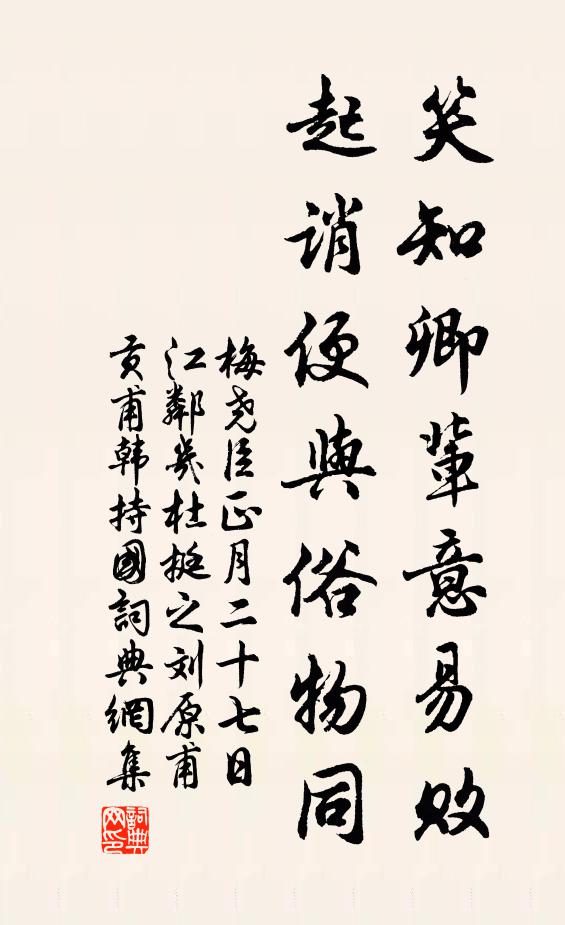 笑知卿輩意易敗
起誚便與俗物同
梅尧臣正月二十七日
江鄰幾杜挺之刘原甫
貢甫韩持國詞典網集
詞典
网印